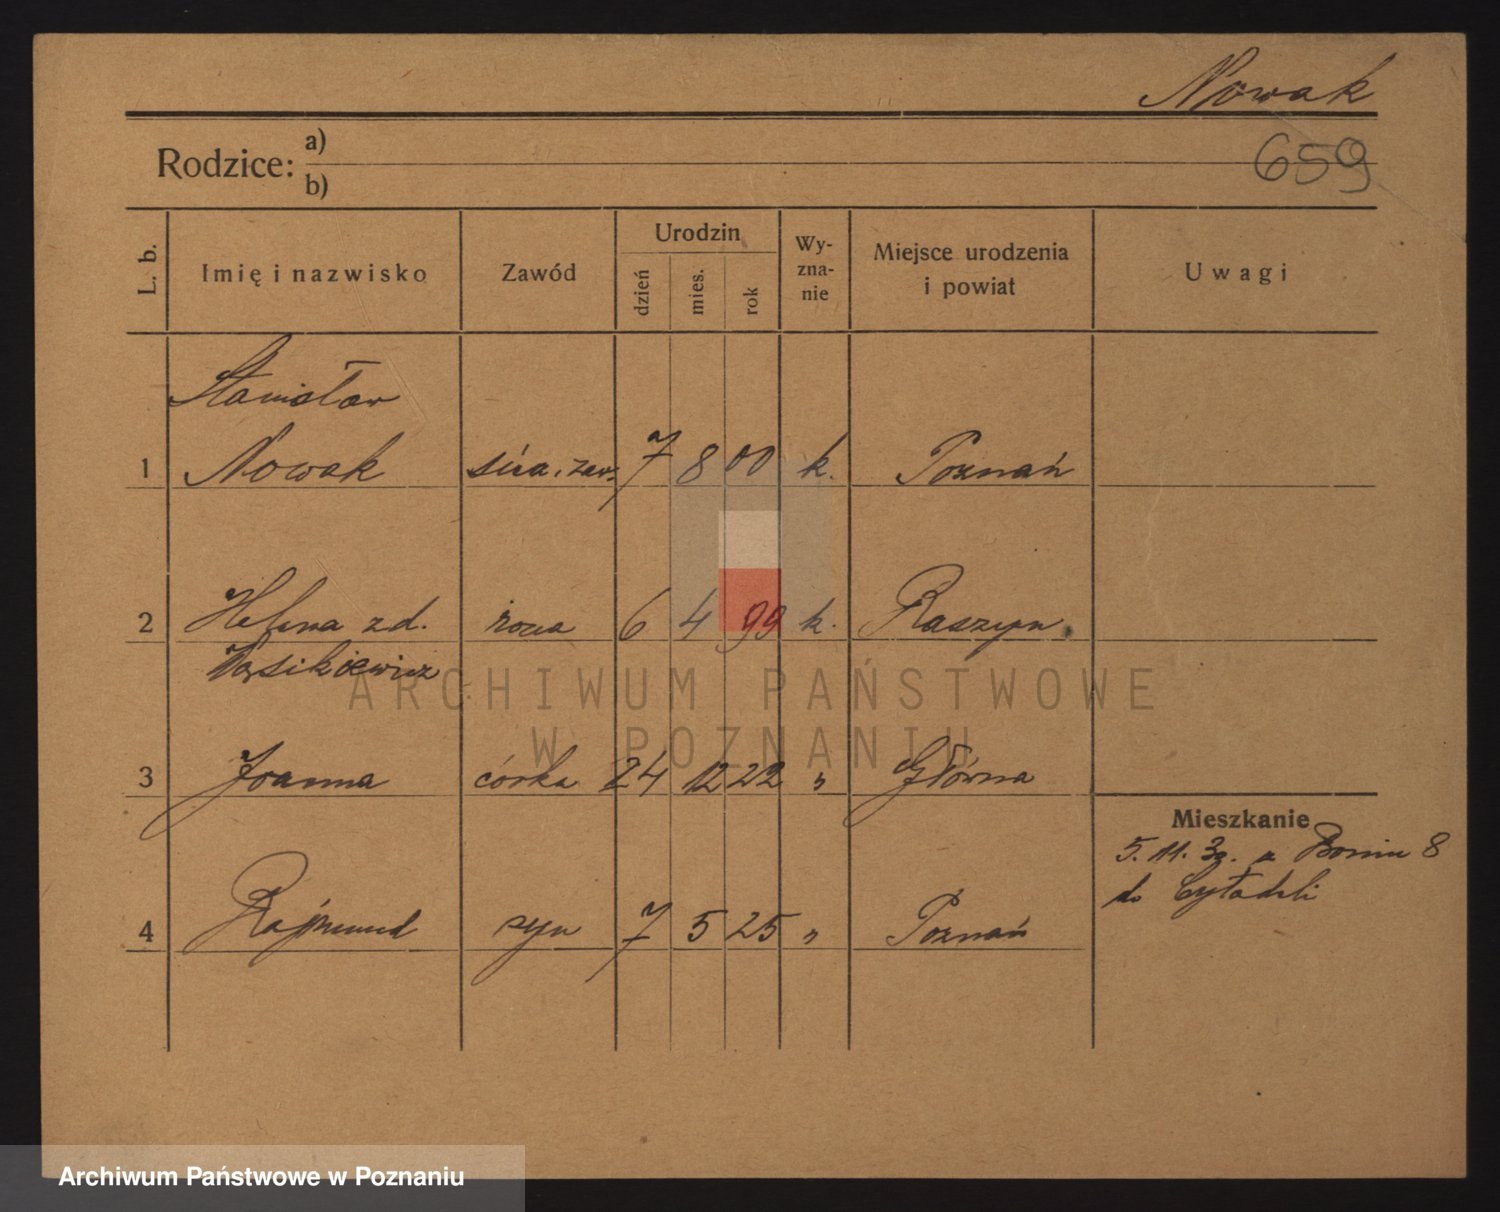 Nowak
659
Rodzice: a)
b)
L. b. Imię i nazwisko Zawód Urodzin dzień mies. rok Wy-zna-nie Miejsce urodzenia i powiat Uwagi
Stanisław
1 Nowak 7 8 00 k. Poznań
2 Helena zd. żona 6 4 99 k. Raszyn
3 Joanna córka 24 12 22 " Główna
Mieszkanie
5. 11. 8
do Cytadeli
4 Rajmund syn 7 5 25 " Poznań
ARCHIWUM PAŃSTWOWE
W POZNANIU
Archiwum Państwowe w Poznaniu